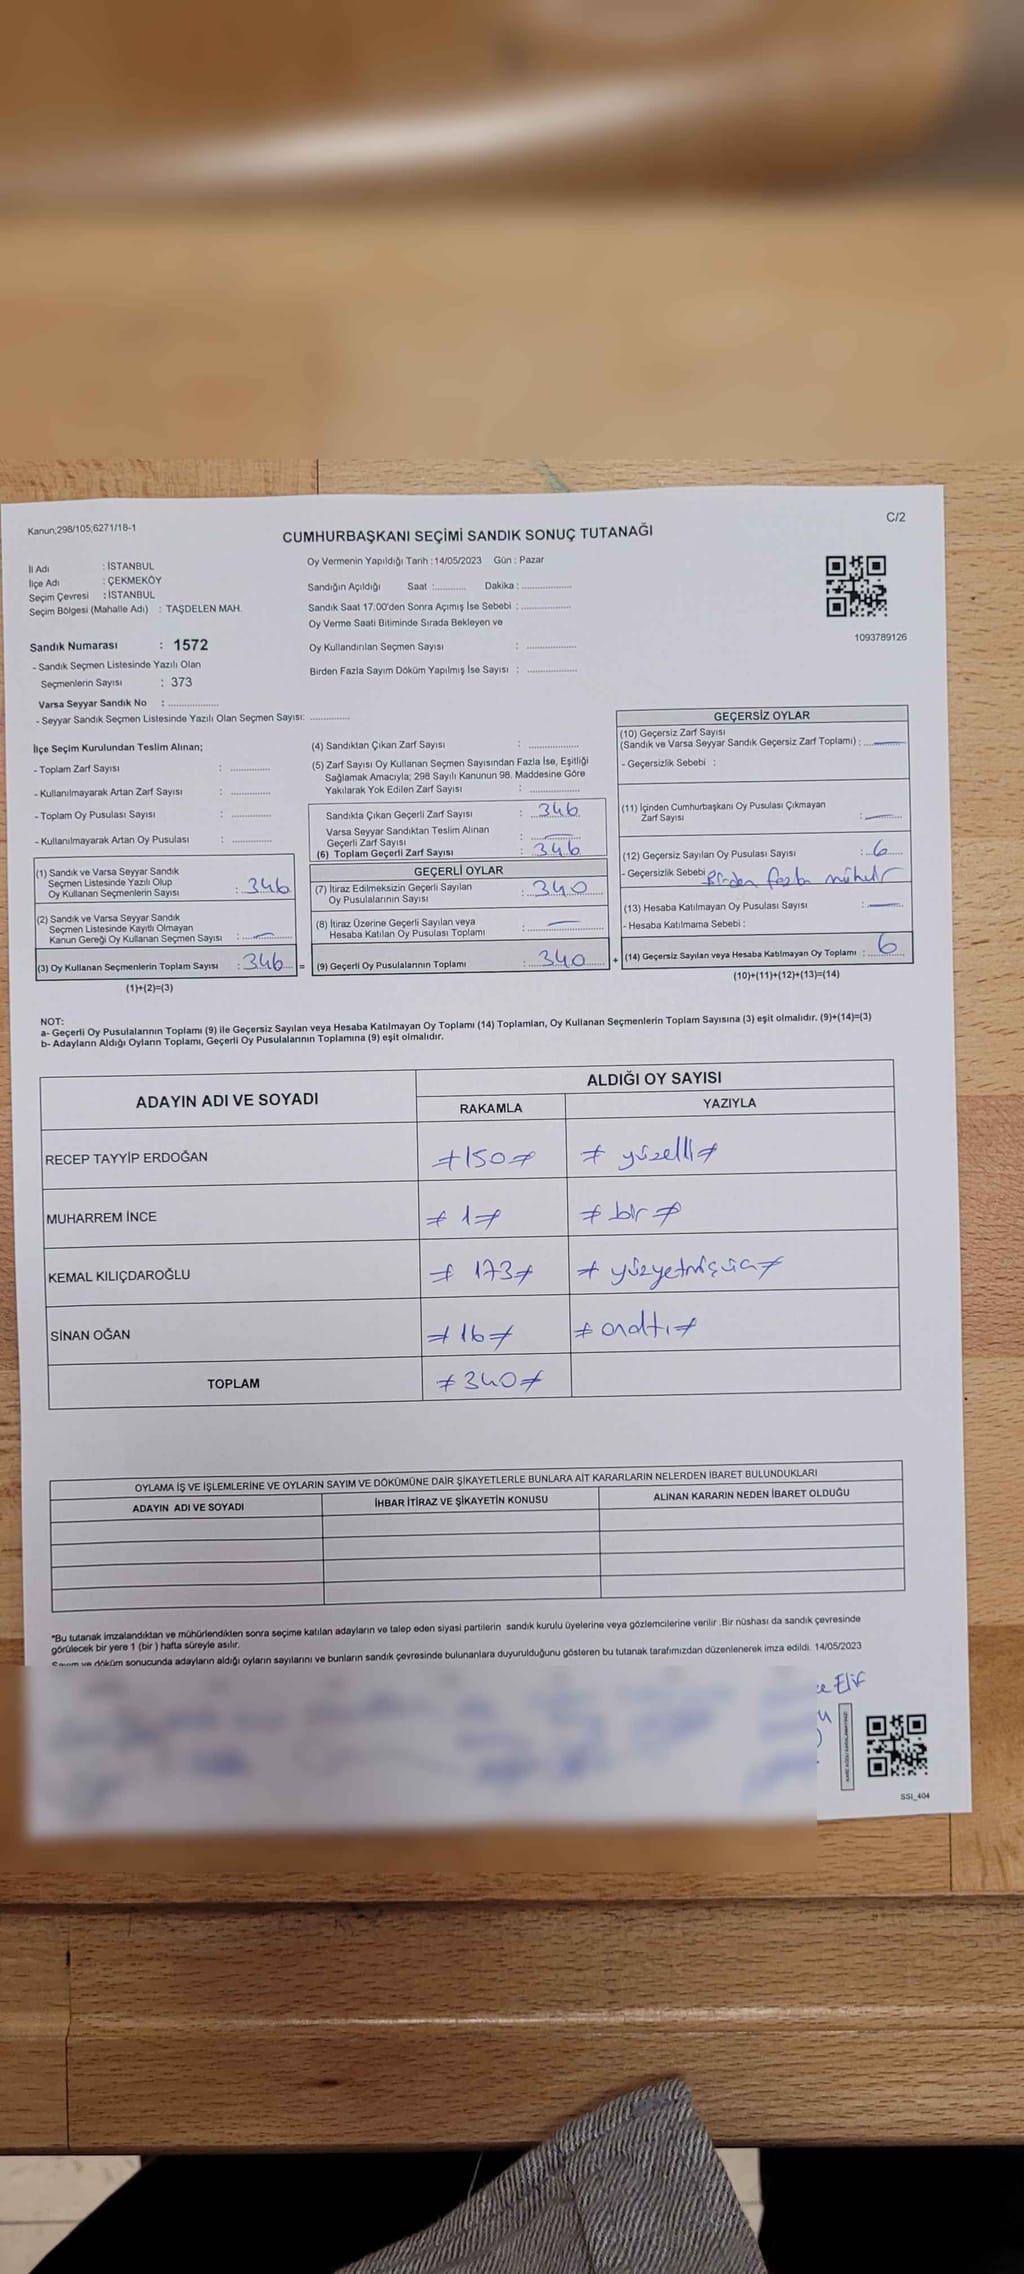 Kanun;298/105;6271/18-1
C/2
CUMHURBAŞKANI SEÇİMİ SANDIK SONUÇ TUTANAĞI
İl Adı : İSTANBUL
İlçe Adı : ÇEKMEKÖY
Seçim Çevresi : İSTANBUL
Seçim Bölgesi (Mahalle Adı) : TAŞDELEN MAH.
Oy Vermenin Yapıldığı Tarih :14/05/2023 Gün : Pazar
Sandığın Açıldığı Saat :........... Dakika :.................
Sandık Saat 17:00'den Sonra Açımış İse Sebebi :.................
Oy Verme Saati Bitiminde Sırada Bekleyen ve
Oy Kullandırılan Seçmen Sayısı : .................
Birden Fazla Sayım Döküm Yapılmış İse Sayısı : .................
1093789126
Sandık Numarası : 1572
- Sandık Seçmen Listesinde Yazılı Olan
Seçmenlerin Sayısı : 373
Varsa Seyyar Sandık No : .................
- Seyyar Sandık Seçmen Listesinde Yazılı Olan Seçmen Sayısı: .............
İlçe Seçim Kurulundan Teslim Alınan;
- Toplam Zarf Sayısı : .............
- Kullanılmayarak Artan Zarf Sayısı : .............
- Toplam Oy Pusulası Sayısı : .............
- Kullanılmayarak Artan Oy Pusulası : .............
(1) Sandık ve Varsa Seyyar Sandık
Seçmen Listesinde Yazılı Olup
Oy Kullanan Seçmenlerin Sayısı : 346
(2) Sandık ve Varsa Seyyar Sandık
Seçmen Listesinde Kayıtlı Olmayan
Kanun Gereği Oy Kullanan Seçmen Sayısı : —
(3) Oy Kullanan Seçmenlerin Toplam Sayısı : 346 =
(1)+(2)=(3)
(4) Sandıktan Çıkan Zarf Sayısı : .................
(5) Zarf Sayısı Oy Kullanan Seçmen Sayısından Fazla İse, Eşitliği
Sağlamak Amacıyla; 298 Sayılı Kanunun 98. Maddesine Göre
Yakılarak Yok Edilen Zarf Sayısı : .................
Sandıkta Çıkan Geçerli Zarf Sayısı : 346
Varsa Seyyar Sandıktan Teslim Alınan
Geçerli Zarf Sayısı : —
(6) Toplam Geçerli Zarf Sayısı : 346
GEÇERLİ OYLAR
(7) İtiraz Edilmeksizin Geçerli Sayılan
Oy Pusulalarının Sayısı : 340
(8) İtiraz Üzerine Geçerli Sayılan veya
Hesaba Katılan Oy Pusulası Toplamı : —
(9) Geçerli Oy Pusulalarının Toplamı : 340 +
GEÇERSİZ OYLAR
(10) Geçersiz Zarf Sayısı
(Sandık ve Varsa Seyyar Sandık Geçersiz Zarf Toplamı) : —
- Geçersizlik Sebebi :
(11) İçinden Cumhurbaşkanı Oy Pusulası Çıkmayan
Zarf Sayısı : —
(12) Geçersiz Sayılan Oy Pusulası Sayısı : 6
- Geçersizlik Sebebi Birden fazla mühür
(13) Hesaba Katılmayan Oy Pusulası Sayısı : —
- Hesaba Katılmama Sebebi :
(14) Geçersiz Sayılan veya Hesaba Katılmayan Oy Toplamı : 6
(10)+(11)+(12)+(13)=(14)
NOT:
a- Geçerli Oy Pusulalarının Toplamı (9) ile Geçersiz Sayılan veya Hesaba Katılmayan Oy Toplamı (14) Toplamları, Oy Kullanan Seçmenlerin Toplam Sayısına (3) eşit olmalıdır. (9)+(14)=(3)
b- Adayların Aldığı Oyların Toplamı, Geçerli Oy Pusulalarının Toplamına (9) eşit olmalıdır.
ADAYIN ADI VE SOYADI ALDIĞI OY SAYISI
RAKAMLA YAZIYLA
RECEP TAYYİP ERDOĞAN ≠150≠ ≠ yüzelli≠
MUHARREM İNCE ≠ 1≠ ≠ bir ≠
KEMAL KILIÇDAROĞLU ≠ 173≠ ≠ yüzyetmişüç≠
SİNAN OĞAN ≠16≠ ≠onaltı≠
TOPLAM ≠340≠
OYLAMA İŞ VE İŞLEMLERİNE VE OYLARIN SAYIM VE DÖKÜMÜNE DAİR ŞİKAYETLERLE BUNLARA AİT KARARLARIN NELERDEN İBARET BULUNDUKLARI
ADAYIN ADI VE SOYADI İHBAR İTİRAZ VE ŞİKAYETİN KONUSU ALINAN KARARIN NEDEN İBARET OLDUĞU
"Bu tutanak imzalandıktan ve mühürlendikten sonra seçime katılan adayların ve talep eden siyasi partilerin sandık kurulu üyelerine veya gözlemcilerine verilir .Bir nüshası da sandık çevresinde
görülecek bir yere 1 (bir ) hafta süreyle asılır.
Sayım ve döküm sonucunda adayların aldığı oyların sayılarını ve bunların sandık çevresinde bulunanlara duyurulduğunu gösteren bu tutanak tarafımızdan düzenlenerek imza edildi. 14/05/2023
Elif
SSI_404